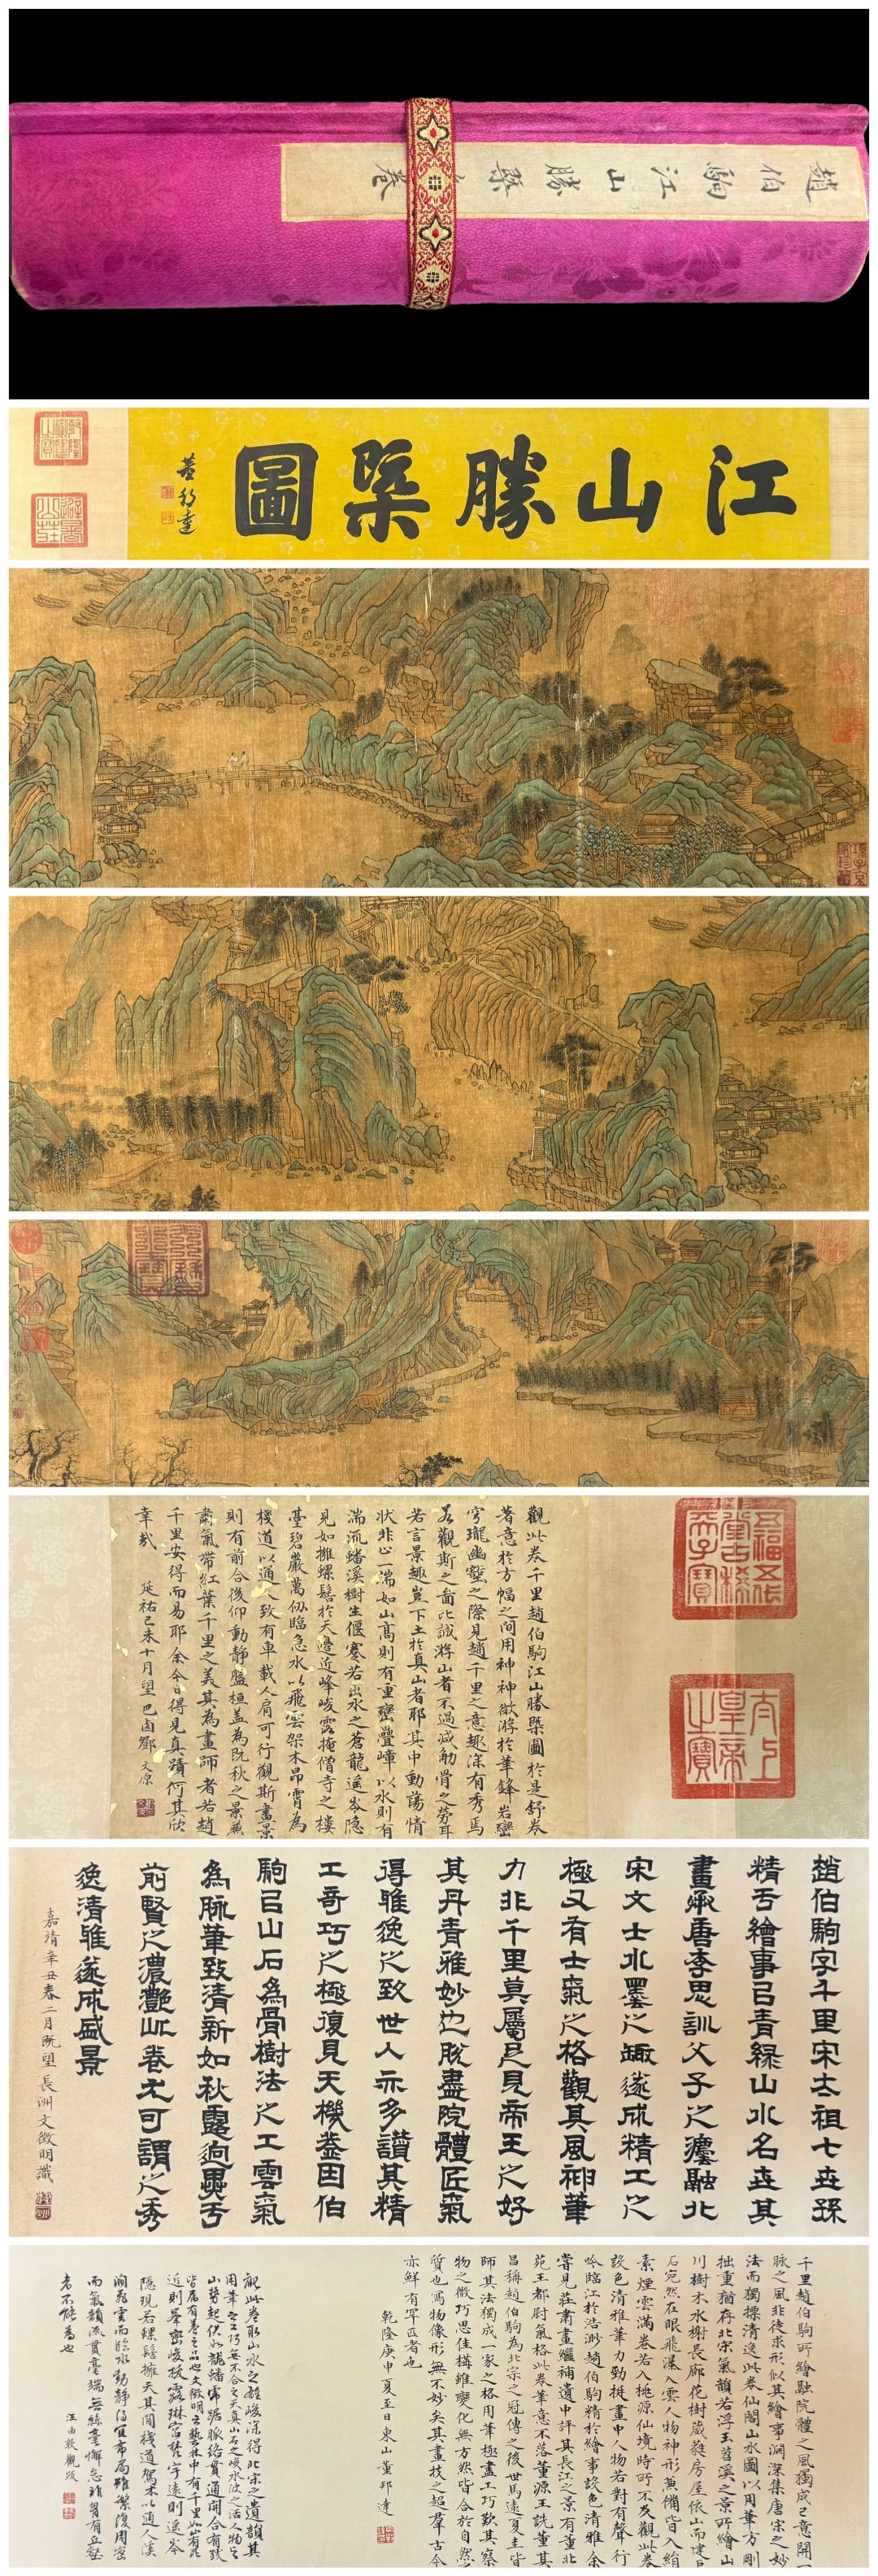 趙伯駒江山勝槩
卷
江山勝槩圖
董邦達
乾隆
之寶
避暑
山莊
項子京
家珍藏
伯駒
五福五代
堂古稀
天子寶
太上
皇帝
之寶
觀此卷千里趙伯駒江山勝槩圖於是舒卷
著意於方幅之間用神神欲游於筆鋒岩巒
穹瓏幽壑之際見趙千里之意趣深有秀焉
若觀斯之面比誠游山者不過減觔骨之勞耳
若言景趣豈下土於真山者耶其中動蕩情
狀非止一端如山高則有重巒疊嶂以水則有
湍流蟠溪樹生偃蹇若出水之蒼龍遥岑隐
見如擁螺髻於天邊近峰峻露掩僧寺之樓
臺碧巖萬仞臨急水以飛雲架木昂霄為
棧道以通人致有車載人肩可行觀斯畫景
則有前合後仰動靜盤桓盖為阮秋之景蕭
肅氣帶紅葉千里之美其為畫師者若趙
千里安得而易耶余今日得見真蹟何其欣
幸哉 延祐己未十月望巴西鄧文原
趙伯駒字千里宋太祖七世孫
精于繪事以青緑山水名世其
畫承唐李思訓父子之灋融北
宋文士水墨之趣遂成精工之
極又有士氣之格觀其風神筆
力非千里莫屬足見帝王之好
其丹青雅妙也脫盡院體匠氣
得雅逸之致世人亦多讃其精
工奇巧之極復見天機登因伯
駒以山石為骨樹法之工雲氣
為脉筆致清新如秋露迥異于
前賢之濃灔此卷尤可謂之秀
逸清雅遂成盛景
嘉靖辛丑春二月既望長洲文徵明識
千里趙伯駒所繪融院體之風獨成己意開一
脉之風非徒求形似其繪事淵深集唐宋之妙
法而獨標清逸此卷仙閣山水圖以用筆方剛
拙重猶存北宋氣韻若浮玉苕溪之景所繪山
川樹木水榭長廊花樹葳蕤房屋依山而建白
石宛然在眼飛瀑入雲人物神形兼備皆入絹
素煙雲滿卷若入桃源仙境時所不及觀此卷
設色清雅筆力勁挺畫中人物若對有聲行
吟臨江於浩渺趙伯駒精於繪事設色清雅余
嘗見莊肅畫繼補遺中評其長江之景有董北
苑王都尉氣格此卷筆意不落董源王詵董其
昌稱趙伯駒為北宗之冠傳之後世馬遠夏圭皆
師其法獨成一家之格用筆極盡工巧歎其察
物之微巧思佳構維變化無方然皆合於自然之
質也寫物像形無不妙矣其畫技之超羣古今
亦鮮有罕匹者也
乾隆庚申夏至日東山董邦達
觀此卷取山水之雄峻深得北宋之遺韻其
用筆之工巧無不合之天真山石之峻水陂之活人物之
山勢起伏如龍蟠虎踞脈絡貫通開合有致
皆属有卷之品也文徵明亦藝林中有千里如山有昆
近則峯密峻拔露琳宮梵宇遠則遥岑
隱現若螺髻擁天其間棧道駕木以通人溪
澗飛雲而臨水動靜得宜布局雖繁復周密
而氣韻流貫毫端無絲毫懈怠非胷有丘壑
者不能為也
汪由敦觀跋